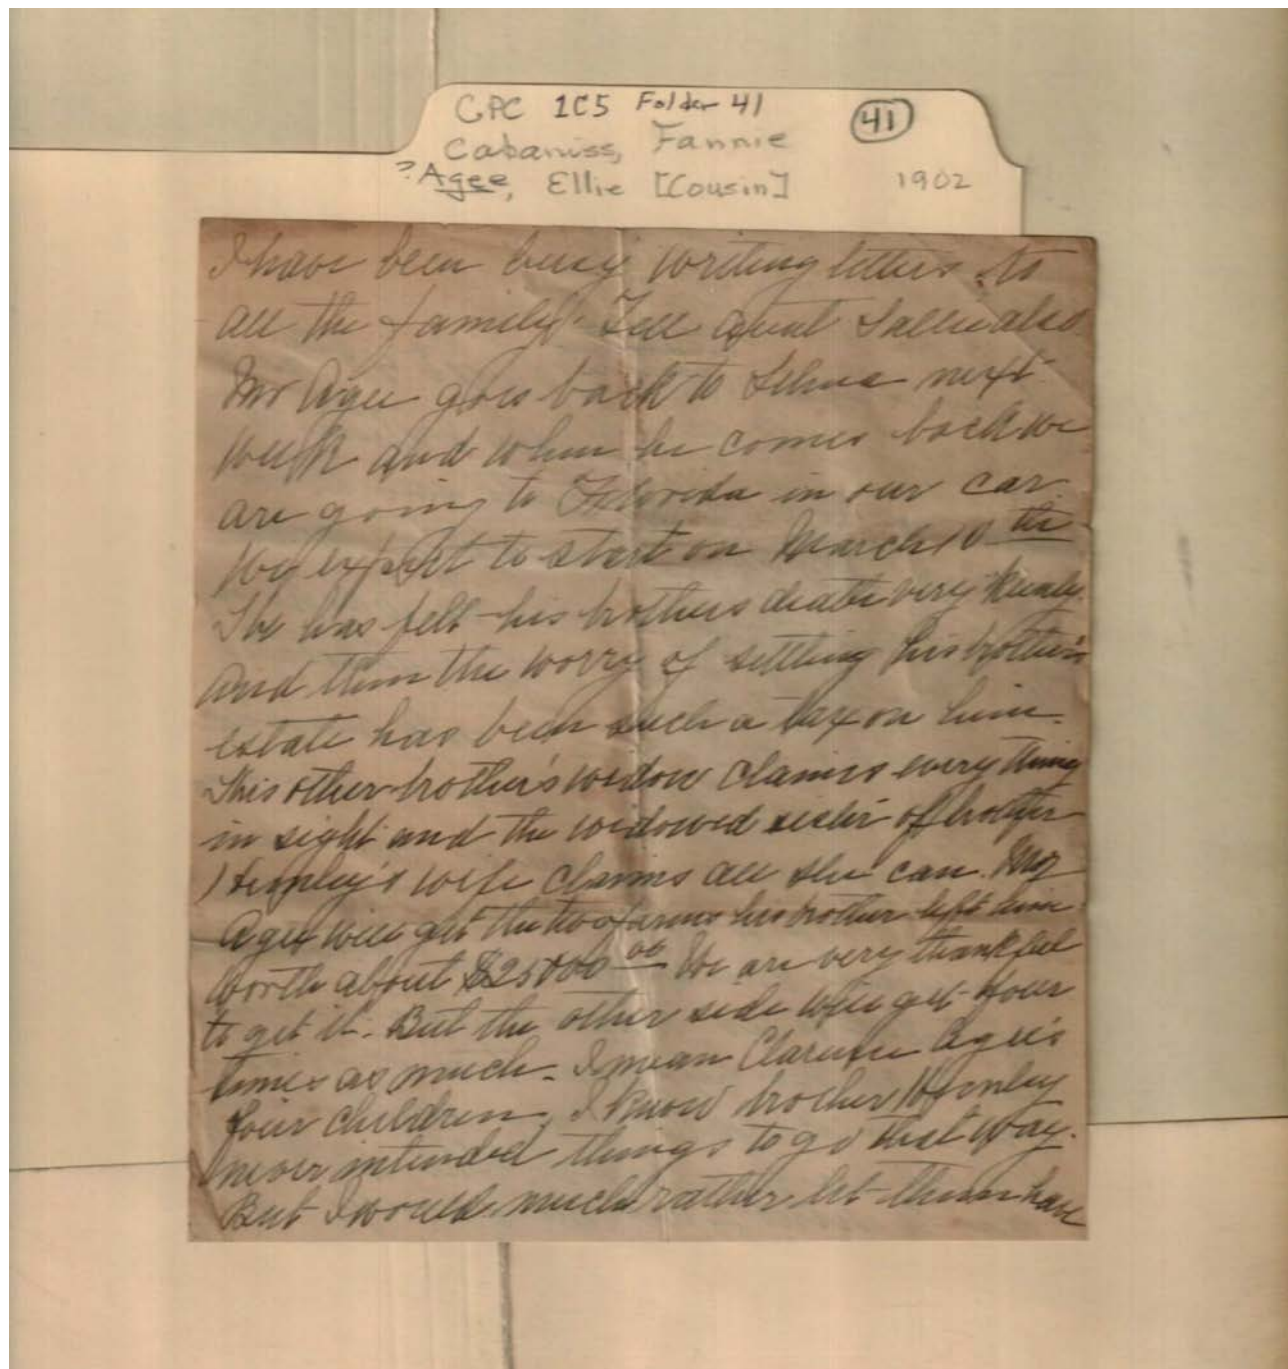 CPC 1C5 Folder 41
41
Cabaniss, Fannie
?Agee, Ellie [Cousin] 1902
I have been busy writing letters to
all the family. Tell Aunt Sallie also
Mr Agee goes back to Selma next
week and when he comes back we
are going to Florida in our car.
We expect to start on March 10 th
He has felt his brothers death very keenly
and then the worry of settling his brother's
estate has been such a tax on him.
His other brother's widow claims every thing
in sight and the widowed sister of brother
Hernley's wife claims all she can. Mr
Agee will get the two farms his brother left him
worth about $25000 00 We are very thankful
to get it. But the other side will get four
times as much - I mean Clarence Agee's
four children, I know brother
never intended things to go that way.
But I would much rather let them have